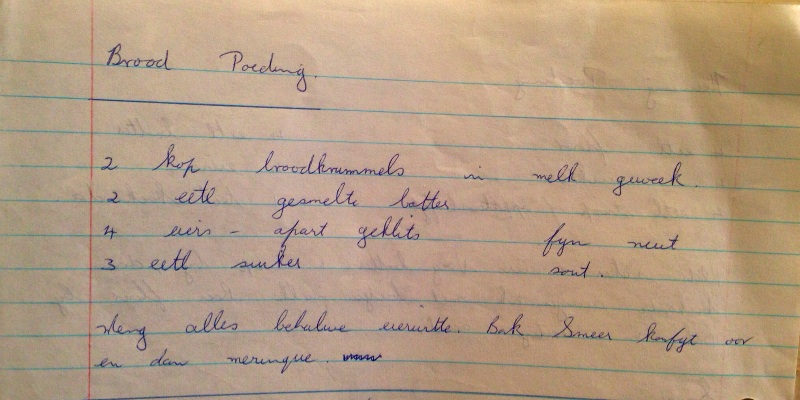 Brood Poeding.
2 kop broodkrummels in melk geweek.
2 eetl gesmelte botter
4 eiers - apart geklits fyn neut
3 eetl suiker sout.
Meng alles behalwe eierwitte. Bak. Smeer konfyt oor
en dan meringue.